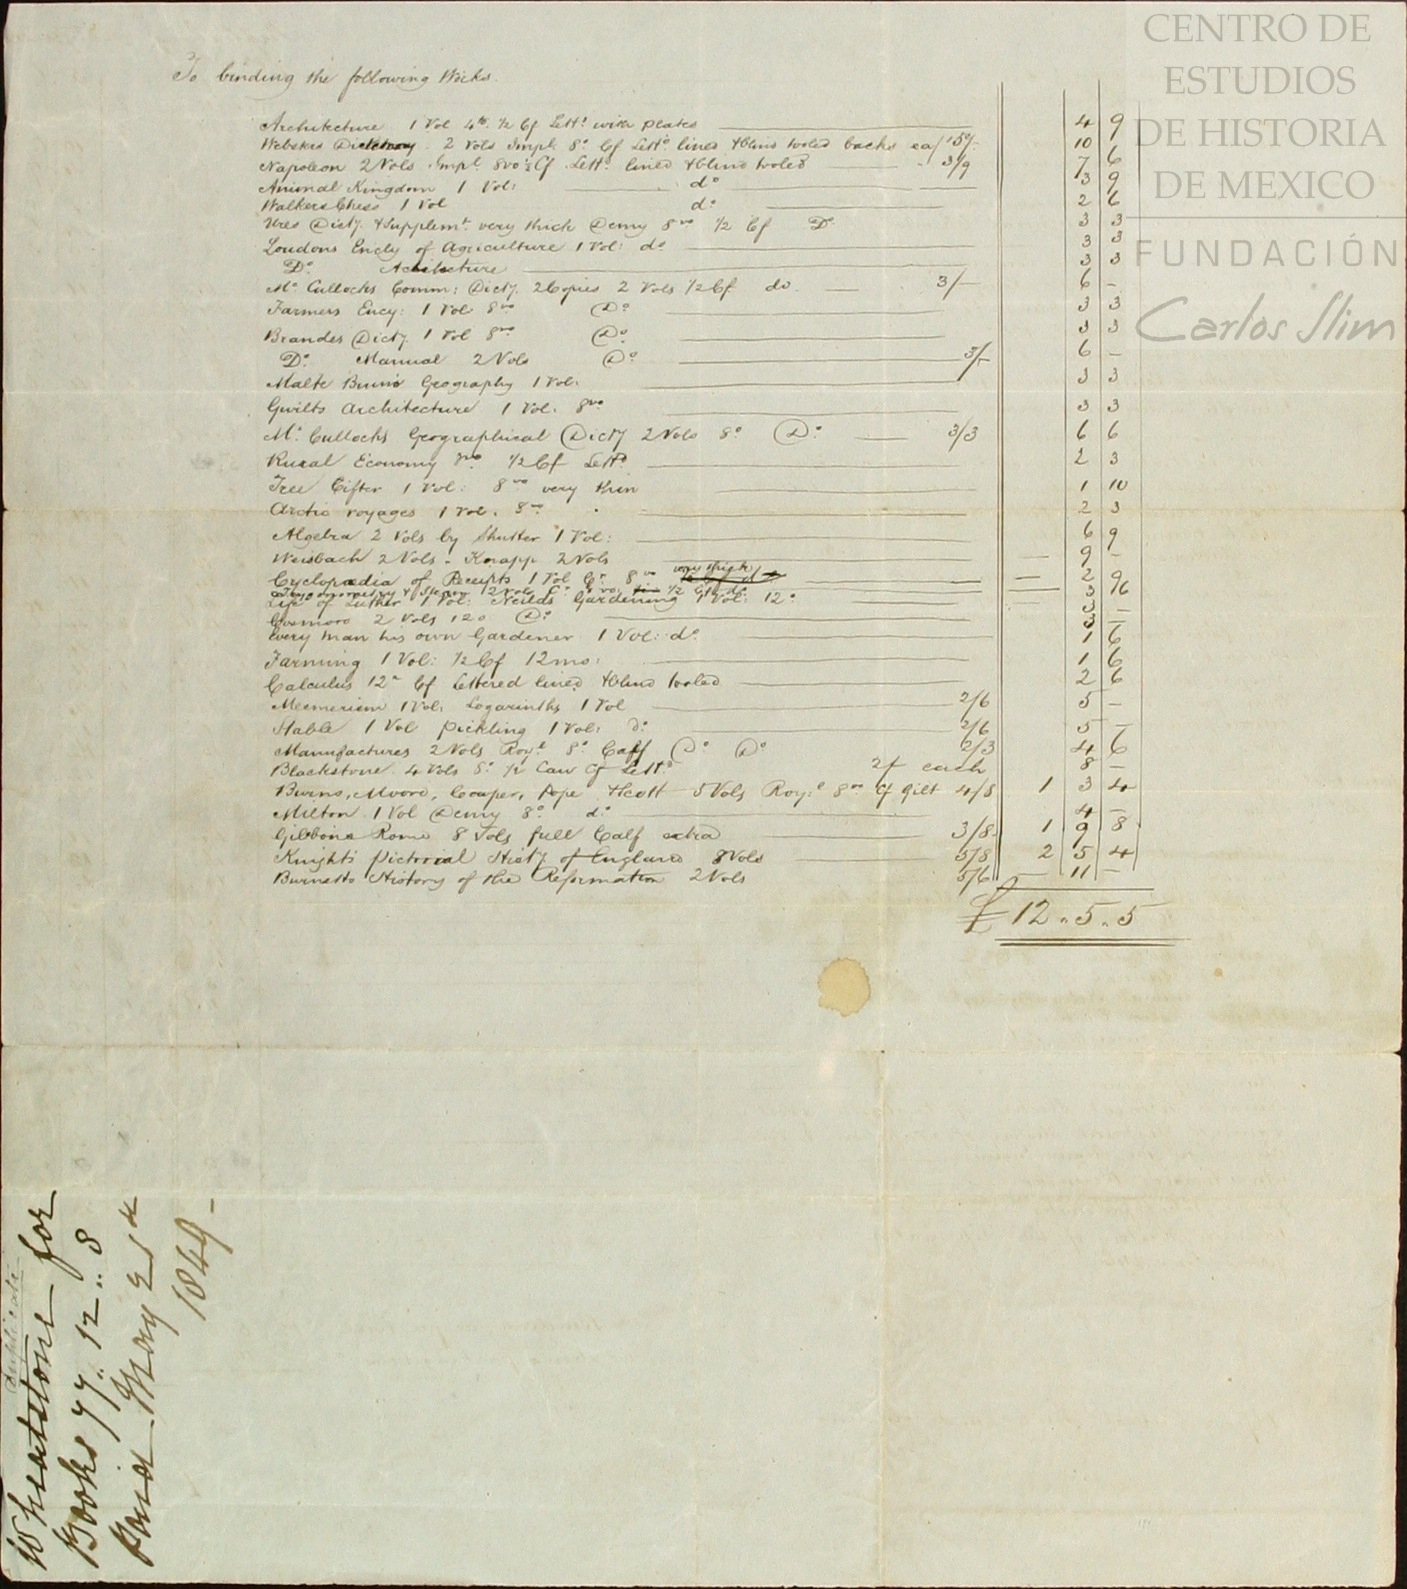 CENTRO DE
ESTUDIOS
DE HISTORIA
DE MEXICO
FUNDACIÓN
Carlos Slim
To binding the following Works.
Architecture 1 Vol 4to. 1/2 Cf Lettd with plates 4 9
Websters Dictionary 2 Vols Impl. 8o. Cf Lettd lined & blind tooled backs ea/ 5/- 10 -
Napoleon 2 Vols Impl. 8vo 1/2 Cf. Lettd. lined & blind tooled 3/9 7 6
Animal Kingdom 1 Vol: do 3 9
Walkers Chess 1 Vol do 2 6
Ures Dicty. & Supplemt. very thick Demy 8vo 1/2 Cf Do 3 3
Loudons Encly of Agriculture 1 Vol: do 3 3
Do. Achitecture 3 3
Mc. Cullochs Comm: Dicty. 2 Copies 2 Vols 1/2 Cf. do 3/- 6 -
Farmers Ency: 1 Vol 8vo Do 3 3
Brandes Dicty. 1 Vol 8vo Do 3 3
Do. Manual 2 Vols Do 3/- 6 -
Malte Bruns Geography 1 Vol: 3 3
Gwilts Architecture 1 Vol. 8vo 3 3
Mc. Cullochs Geographical Dicty 2 Vols 8o. Do 3/3 6 6
Rural Economy 8vo. 1/2 Cf Lettd 2 3
Tree Lifter 1 Vol: 8vo very thin 1 10
Arctic voyages 1 Vol. 8vo 2 3
Algebra 2 Vols by Shutter 1 Vol: 6 9
Weisbach 2 Vols - Knapp 2 Vols 9 -
Cyclopædia of Receipts 1 Vol 8vo very thick 2 9
Trigonometry & 2 vols 1/2 Cf do
Life of Luther 1 Vol: Neilds Gardening 1 Vol: 12o 3 -
Cosmoro 2 Vols 12o Do. 3 -
Every man his own Gardener 1 Vol: do. 1 6
Farming 1 Vol: 1/2 Cf 12mo: 1 6
Calculus 12o Cf Lettered lined & blind tooled 2 6
Mesmerism 1 Vol: Logarinths 1 Vol 2/6 5 -
Stable 1 Vol Pickling 1 Vol: do 2/6 5 -
Manufactures 2 Vols Royl 8o. Calf Do Do 2/3 4 6
Blackstone 4 Vols 8o. 1/2 Law Cf Lettd 2/ each 8 -
Burns, Moore, Cowper, Pope & Scott 5 Vols Royl. 8vo Cf gilt 4/8 1 3 4
Milton 1 Vol Demy 8o. do 4 -
Gibbons Rome 8 Vols full Calf extra 3/8 1 9 8
Knights Pictorial Histy of England 8 Vols 5/8 2 5 4
Burnetts History of the Reformation 2 Vols 5/6 - 11 -
£ 12 „ 5 „ 5
Duplicate
Wheatstone for
Books 77.. 12.. 8
Paid May 21st
1849 -